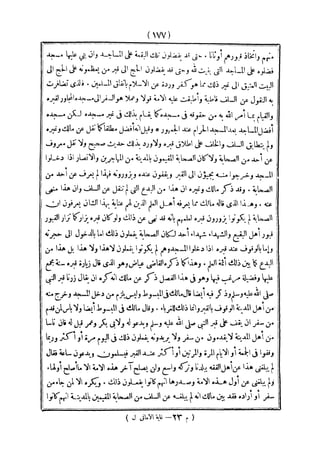 ( ١٧٧ )
منهم واتخاذ قبورهم أوثانا . حتى قد يفضلون تلك البقعة على المساجد وان بني عليها مسجد
فضلوه على المساجد التى بنيت لله وحتى قد يفضلون الحج الى قبر من يعظمونه على الحج الى
البيت العتيق الى غير ذلك مما هو كفر وردة عن الاسلام باتفاق المسلمين . فالذى تضافرت
به النقول عن السلف قاطبة وأطبقت عليه الامة قولا وعملا هو السفر الى مسجده المجاور لقبره
والقيام بما أمر الله به من حقوقه فى مسجده كما يقام بذلك فى غير مسجده لكن مسجده
أفضل المساجد بعد المسجد الحرام عند الجمهور * وقيل انه أفضل مطلقا كما نقل عن مالك وغيره
ولم يتطابق السلف والخلف على اطلاق زيارة قبره ولا ورد بذلك حديث صحيح ولا نقل معروف
عن أحد من الصحابة ولا كان الصحابة المقيمون بالمدينة من المهاجرين والانصار اذا دخلوا
المسجد وخرجوا منه يجيئون الى القبر ويقفون عنده ويزورونه فهذا لم يعرف عن أحد من
الصحابة . وقد ذكر مالك وغيره ان هذا من البدع التى لم تنقل عن السلف وان هذا منهى
عنه . وهذا الذى قاله مالك مما يعرفه أهل العلم الذين لهم عناية بهذا الشان يعرفون ان
الصحابة لم يكونوا يزورون قبره لعلمهم بانه قد نهى عن ذلك ولو كان قبره يزار كما تزار القبور
قبور أهل البقيع والشهداء شهداء أحد لكان الصحابة يفعلون ذلك اما بالدخول الى حجرته
واما بالوقوف عند قبره اذا دخلوا المسجد وهم لم يكونوا يفعلون لا هذا ولا هذا بل هذا من
البدع كما بين ذلك أئمة العلم . وهذا كما ذكره القاضى عياض وهو الذى قال زيارة قبره سنة مجمع
عليها وفضيلة مرغب فيها وهو فى هذا الفصل ذكر عن مالك انه كره ان يقال زرنا قبر النبى
صلى الله عليه وسلم وذكر فيه أيضا قال مالك فى المبسوط وليس يلزم من دخل المسجد وخرج منه
من أهل المدينة الوقوف بالقبر وانما ذلك للغرباء . وقال مالك فى المبسوط أيضا ولا باس لمن قدم
من سفر ان يقف على قبر النبى صلى الله عليه وسلم ويدعو له ولابى بكر وعمر قيل له فان ناسا
من أهل المدينة لا يقدمون . من سفر ولا يريدونه يفعلون ذلك فى اليوم مرة أو أكثر وربما
وقفوا فى الجمعة أو الايام المرة والمرتين أو أكثر عند القبر فيسلمون ويدعون ساعة فقال
لم يبلغنى هذا عن أهل الفقه ببلدنا وتركه واسع ولن يصلح آخر هذه الامة الا ما أصلح أولها .
ولم يبلغنى عن أول هذه الامة وصدرها انهم كانوا يفعلون ذلك . ويكره الا لمن جاء من
سفر أو أراده فقد بين مالك انه لم يبلغه عن السلف من الصحابة المقيمين بالمدينة انهم كانوا
( م ٢٣ – غاية الأمانى ل )